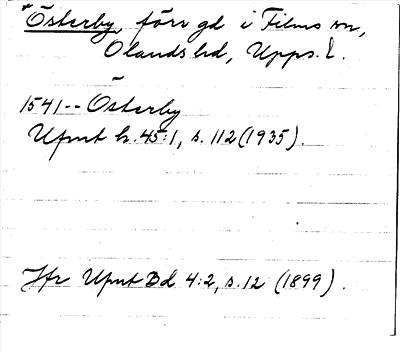 Österby, förr gd i Films sn,
Olands hd, Upps. l.
1541-- Österby
Ufmt h. 45:1, s. 112 (1935).
Jfr Ufmt Bd. 4:2, s. 12 (1899).